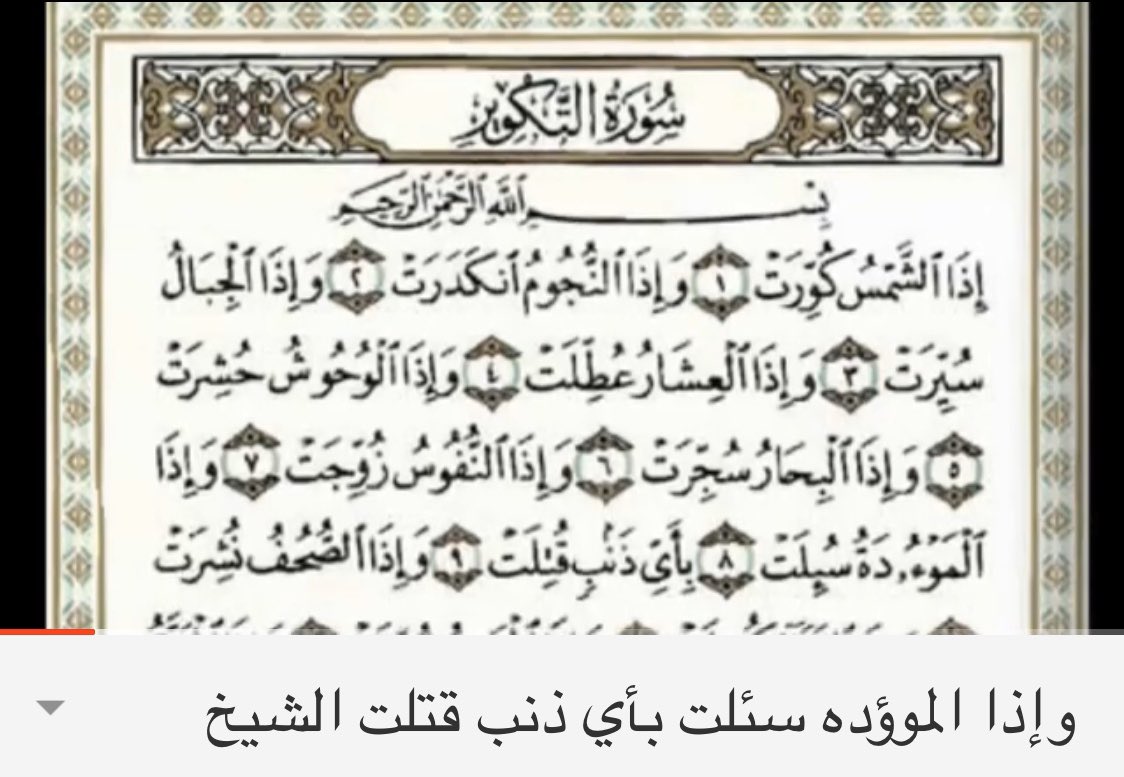 سُورَةُ التَّكْوِيرِ
بِسْمِ ٱللَّهِ ٱلرَّحْمَٰنِ ٱلرَّحِيمِ
إِذَا ٱلشَّمْسُ كُوِّرَتْ ١ وَإِذَا ٱلنُّجُومُ ٱنكَدَرَتْ ٢ وَإِذَا ٱلْجِبَالُ
سُيِّرَتْ ٣ وَإِذَا ٱلْعِشَارُ عُطِّلَتْ ٤ وَإِذَا ٱلْوُحُوشُ حُشِرَتْ
٥ وَإِذَا ٱلْبِحَارُ سُجِّرَتْ ٦ وَإِذَا ٱلنُّفُوسُ زُوِّجَتْ ٧ وَإِذَا
ٱلْمَوْءُۥدَةُ سُئِلَتْ ٨ بِأَىِّ ذَنۢبٍ قُتِلَتْ ٩ وَإِذَا ٱلصُّحُفُ نُشِرَتْ
وإذا الموؤده سئلت بأي ذنب قتلت الشيخ